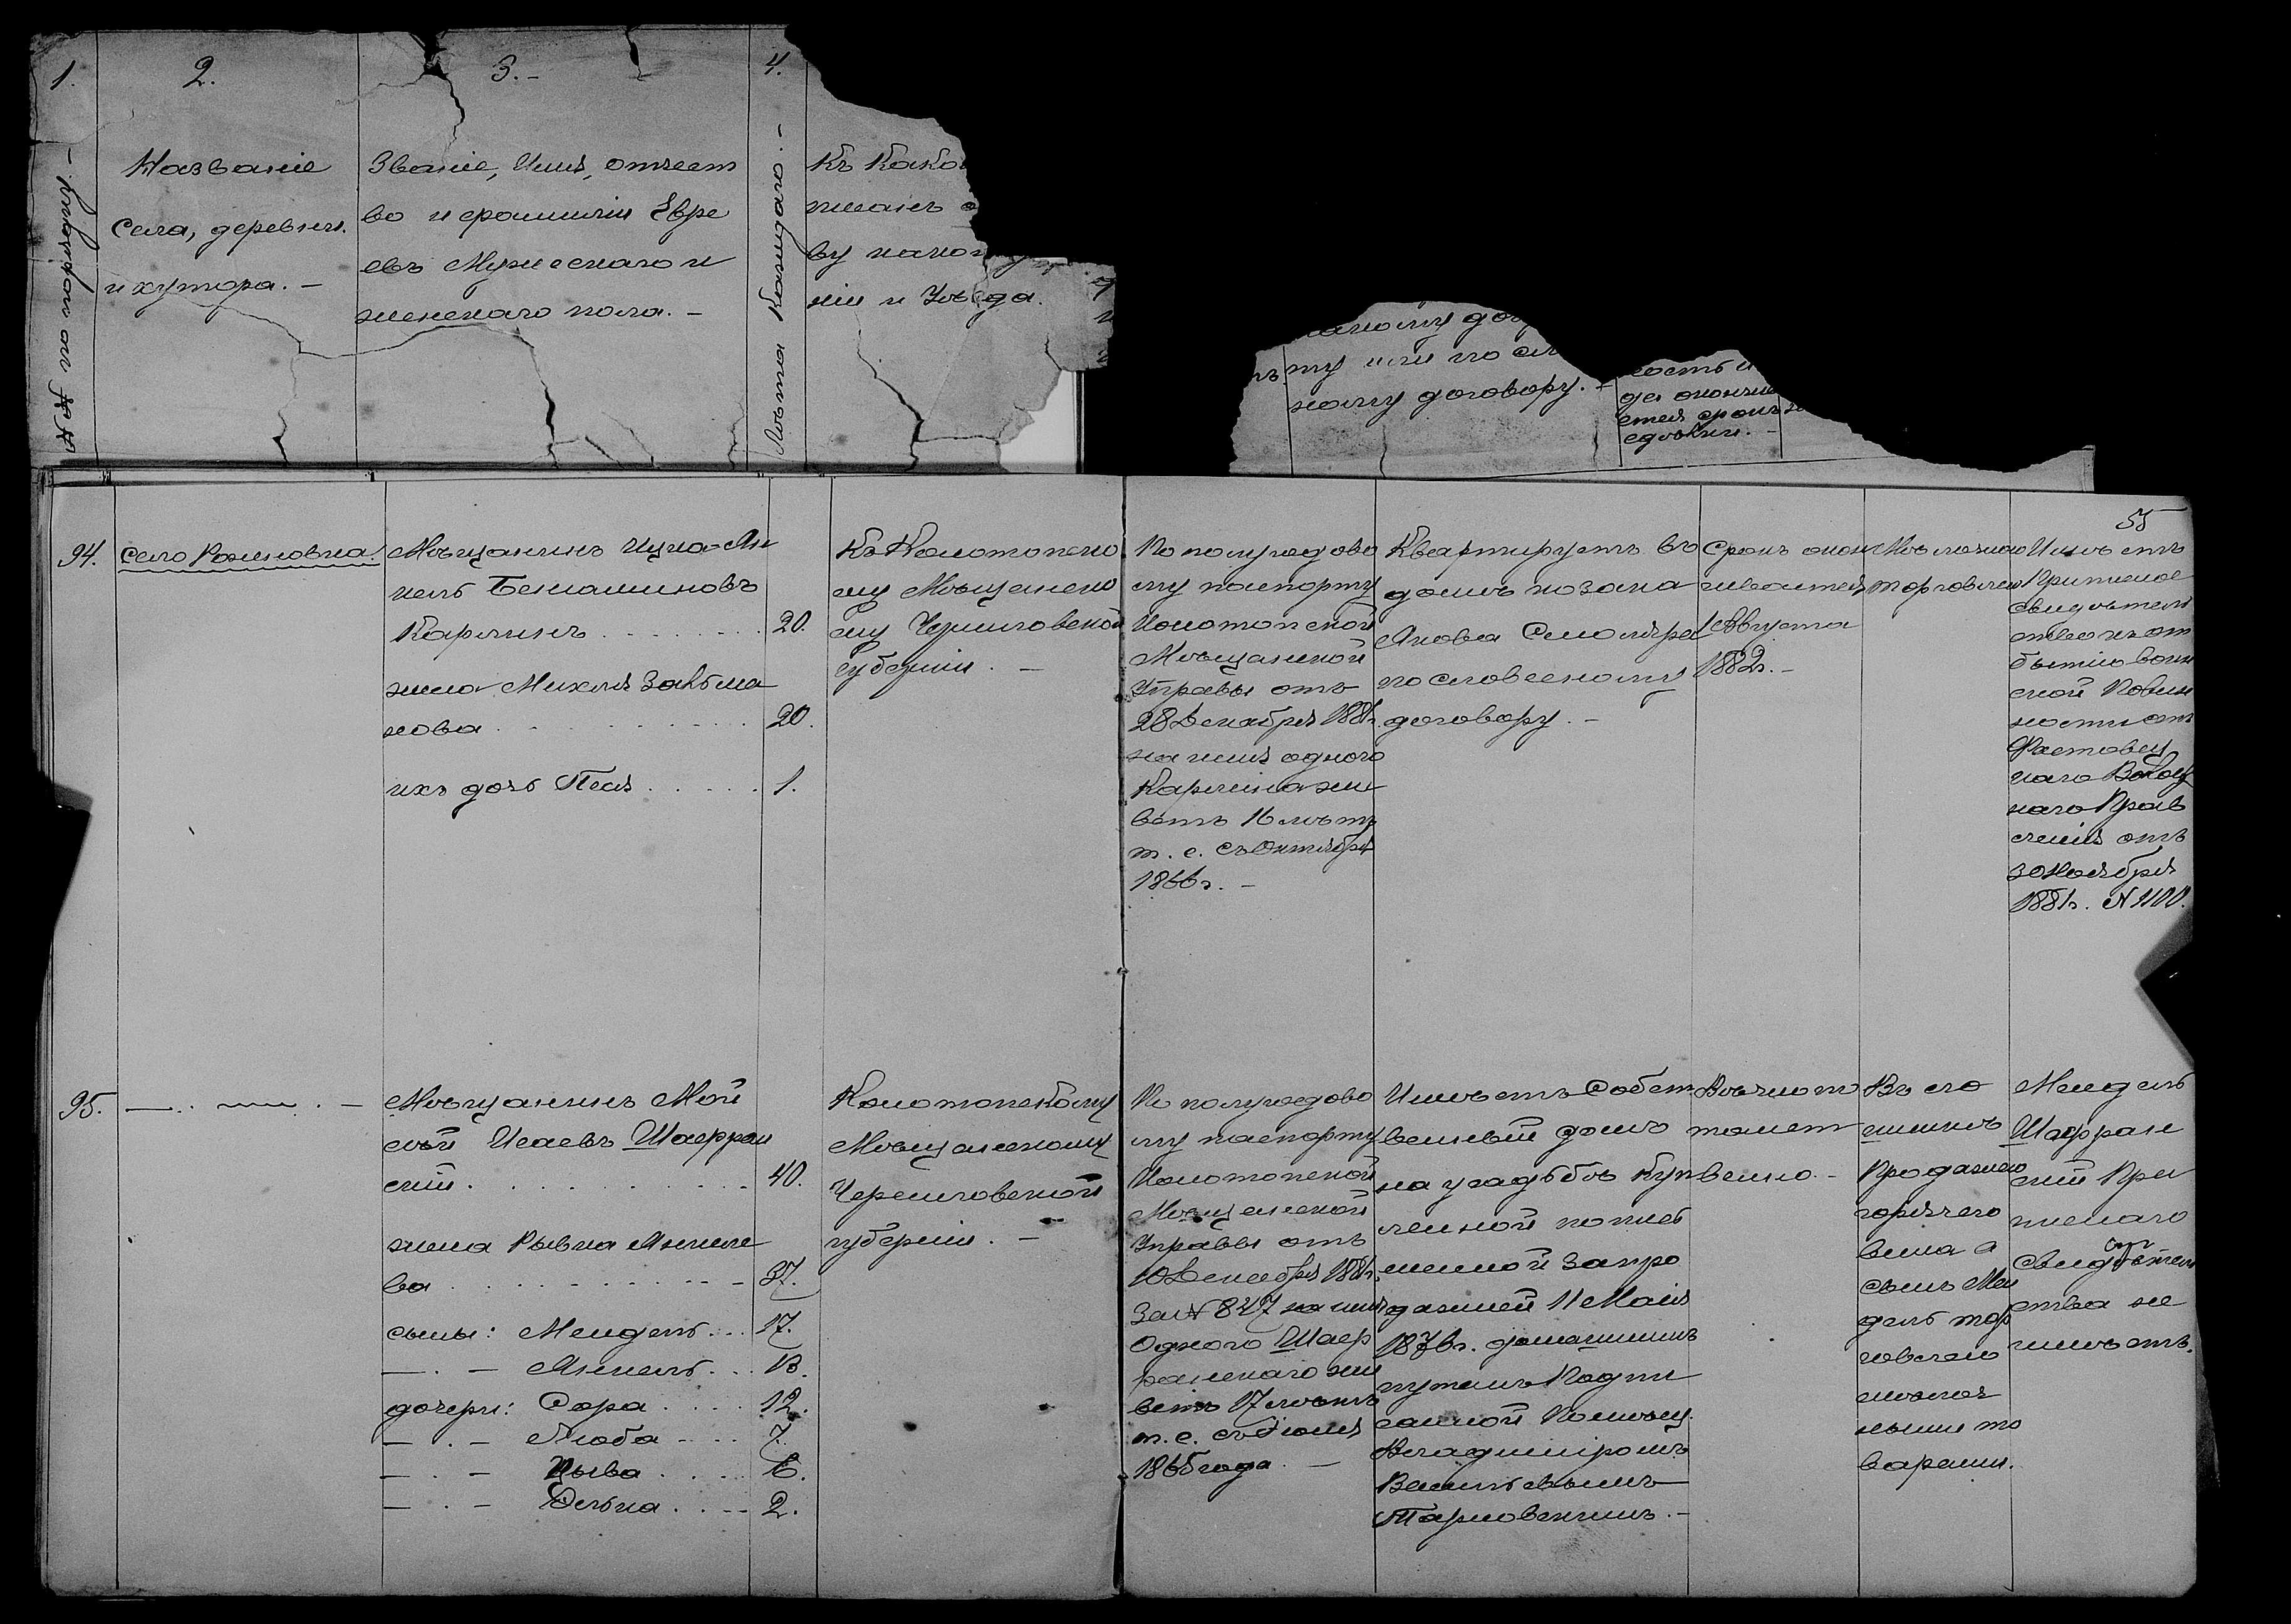 1.
2.
3.-
4.
№№ по порядку.-
Названіе
села, деревни
и хутора.-
Званіе, Имя, отчест
во и фамилія Евре
евъ Мужескаго и
женскаго пола.-
Лѣта Каждаго.-
Къ Како
писанъ
ву како
ніи и Уѣзда.
му или по сл
ному договору.-
ность и
да оконча
ется срокъ
сдѣлки.-
55
94.
село Рожновка
Мѣщанинъ Ицка-Ан
кель Беньаминовъ
Карлинъ . . . . . . .
20.
жена Михля Залма
нова . . . . . . . . . .
20.
ихъ дочь Песя . . . . .
1.
Къ Конотопско
му Мѣщанско
му Черниговской
губерніи. -
По полугодово
му паспорту
Конотопской
Мѣщанской
Управы отъ
28 Декабря 1881г.
на имя одного
Карлина жи
ветъ 16 лѣтъ
т. е. съ Октября
1866г. -
Квартируетъ въ
домѣ козака
Якова Смоляра
по словесному
договору. -
Срокъ окон
чивается
1 Августа
1882г. -
Мѣлочною
торговлею
Имѣетъ
Приписное
свидѣтель
ство къ от
бытію воин
ской Повин
ности отъ
Фастовец
каго Волост
наго Прав
ленія отъ
30 Ноября
1881г. № 1100.
95.
— . . — . —
Мѣщанинъ Мой
сей Исаевъ Шафран
скій . . . . . . . . . .
40.
жена Рывка Анкеле
ва . . . . . . . . . . -
37.
сыны: Мендель . . .
17.
— . - Анкель . . .
13.
дочери: Сора . . . .
12.
— . - Люба . . . .
7.
— . - Цыва . . . .
6.
— . - Элька . . . .
2.
Конотопскому
Мѣщанскому
Черниговской
губерніи. -
По полугодово
му паспорту
Конотопской
Мѣщанской
Управы отъ
10 Декабря 1881г.
за № 827 на имя
одного Шаф
ранскаго жи
ветъ 17 лѣтъ
т. е. съ Іюня
1865 года. -
Имѣетъ собст
венный домъ
на усадьбѣ куп
ленной по
запро
дажней 11 Мая
1876г. домашнимъ
путемъ Подпи
санной Помѣщ.
Владиміромъ
Васильевымъ
Тарновскимъ. -
Вѣчно
потомст
венно. -
Въ его
шинкѣ
Продажею
горячего
вина а
сынъ Мен
дель тор
говлею
мѣлоч
ными то
варами.
Мендель
Шафран
скій При
писнаго
свидѣтель
ства не
имѣетъ.